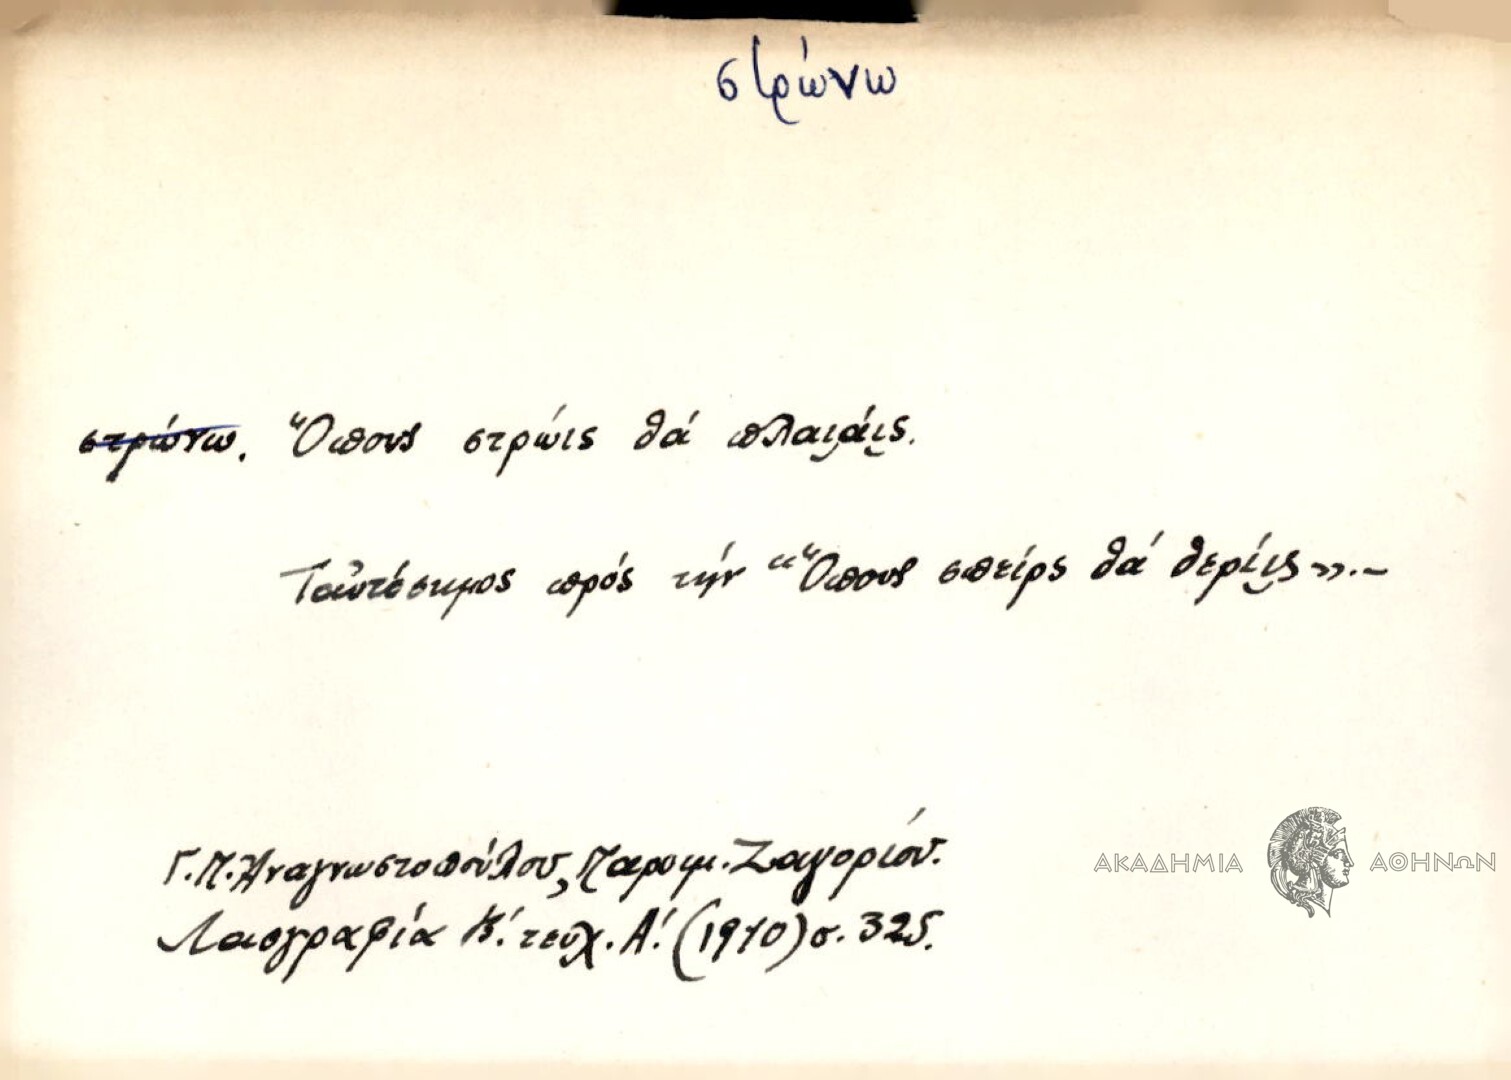 στρώνω
στρώνω. Ὅπους στρώις θά πλαιιάις.
Ταὐτόσημος πρός τήν "Ὅπους σπείρς θά θερίις».-
Γ. Π. Ἀναγνωστοπούλου, Παροιμ. Ζαγορίου.
Λαογραφία Β΄. τευχ. Α΄. (1910) σ. 325.
ΑΚΑΔΗΜΙΑ ΑΘΗΝΩΝ